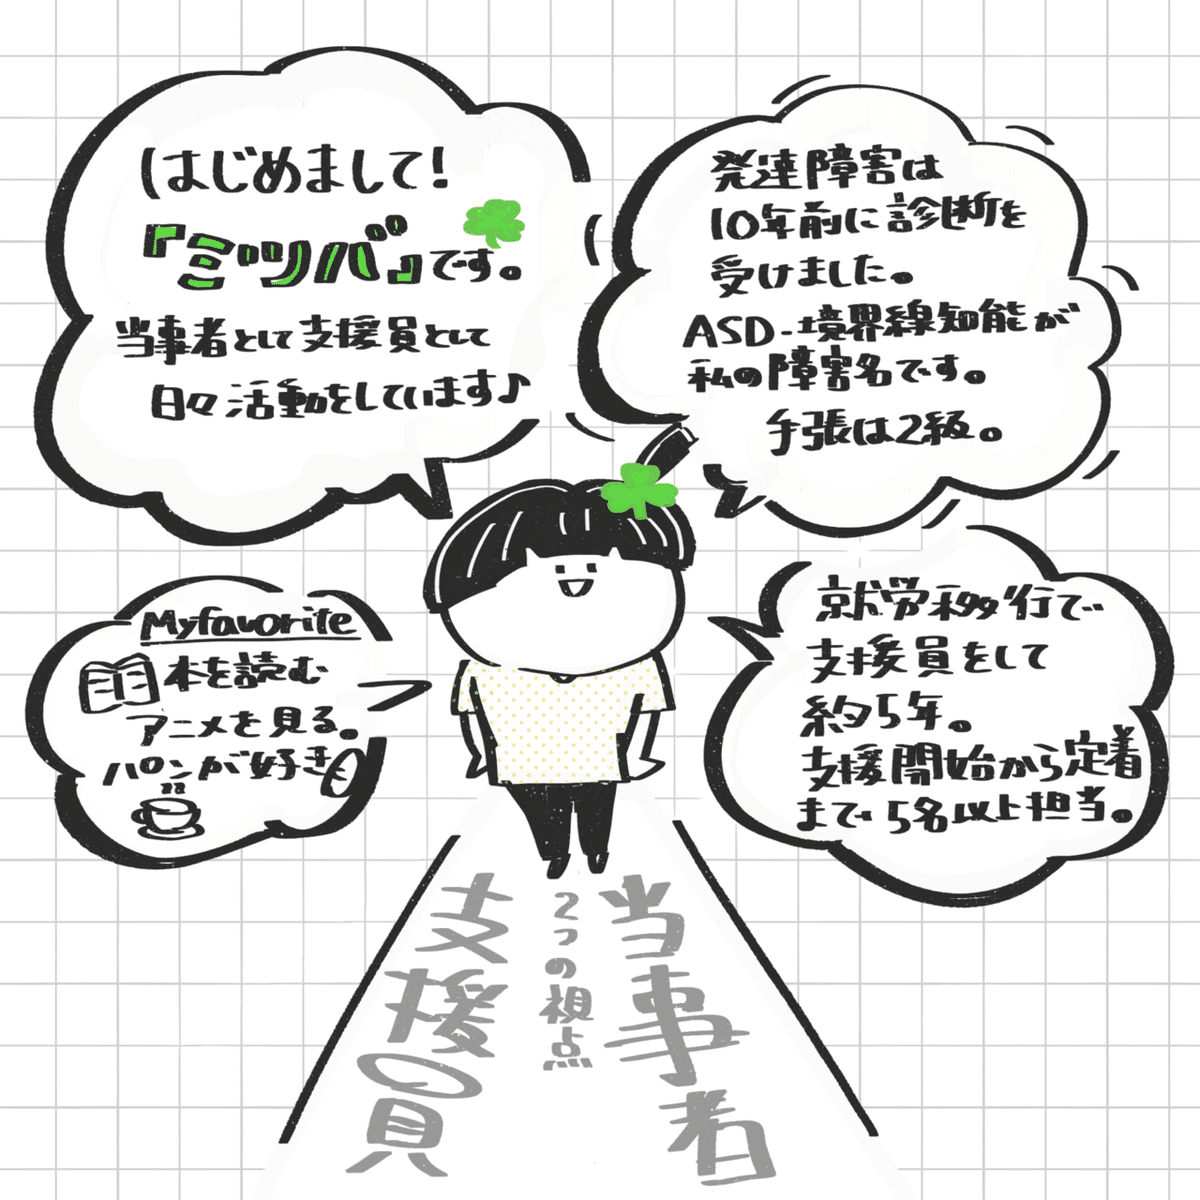 はじめまして！
『ミツバ』です。
当事者として支援員として
日々活動をしています♪
発達障害は
10年前に診断を
受けました。
ASD-境界線知能が
私の障害名です。
手張は2級。
My favorite
本を読む
アニメを見る。
パンが好き
就労移行で
支援員をして
約5年。
支援開始から定着
まで5名以上担当。
支援員
2つの視点
当事者